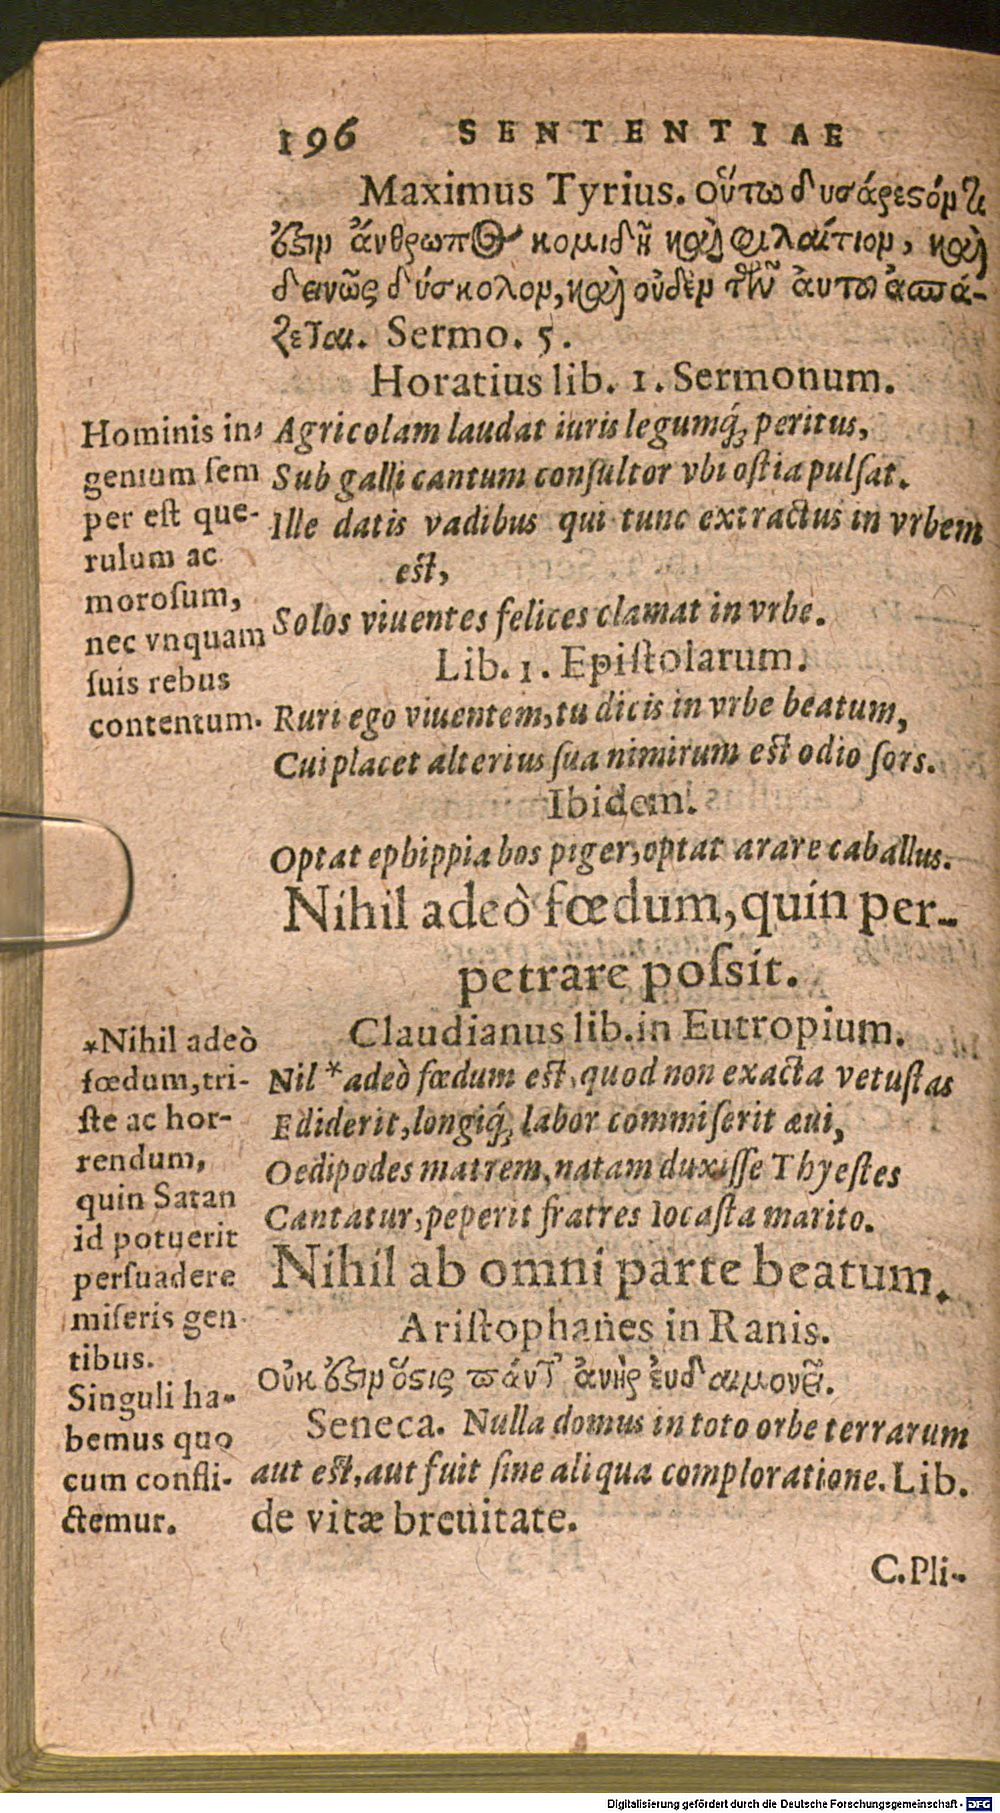 196 SENTENTIAE
Maximus Tyrius. οὕτω δυσάρεστόν τι
ἐστὶν ἄνθρωπος κομιδῆ καὶ φιλαίτιον, καὶ
δεινῶς δύσκολον, καὶ οὐδὲν τῶν αὐτοῦ ἀσπά-
ζεται. Sermo. 5.
Horatius lib. 1. Sermonum.
Agricolam laudat iuris legumq́; peritus,
Sub galli cantum conſultor vbi oſtia pulſat.
Ille datis vadibus qui tunc extractus in vrbem
eſt,
Solos viuentes felices clamat in vrbe.
Lib. 1. Epiſtolarum.
Ruri ego viuentem, tu dicis in vrbe beatum,
Cui placet alterius ſua nimirum eſt odio ſors.
Ibidem.
Optat ephippia bos piger, optat arare caballus.
Hominis in-
genium ſem
per eſt que-
rulum ac
moroſum,
nec vnquam
ſuis rebus
contentum.
Nihil adeò fœdum, quin per-
petrare poſsit.
Claudianus lib. in Eutropium.
Nil * adeò fœdum eſt, quod non exacta vetuſtas
Ediderit, longiq́; labor commiſerit æui,
Oedipodes matrem, natam duxiſſe Thyeſtes
Cantatur, peperit fratres Iocaſta marito.
*Nihil adeò
fœdum, tri-
ſte ac hor-
rendum,
quin Satan
id potuerit
perſuadere
miſeris gen
tibus.
Nihil ab omni parte beatum.
Ariſtophanes in Ranis.
οὐκ ἐστὶν ὅστις πάντ' ἀνὴρ ἐυδαιμονεῖ.
Seneca. Nulla domus in toto orbe terrarum
aut eſt, aut fuit ſine aliqua comploratione. Lib.
de vitæ breuitate.
Singuli ha-
bemus quo
cum confli-
ctemur.
C. Pli-
Digitalisierung gefördert durch die Deutsche Forschungsgemeinschaft - DFG